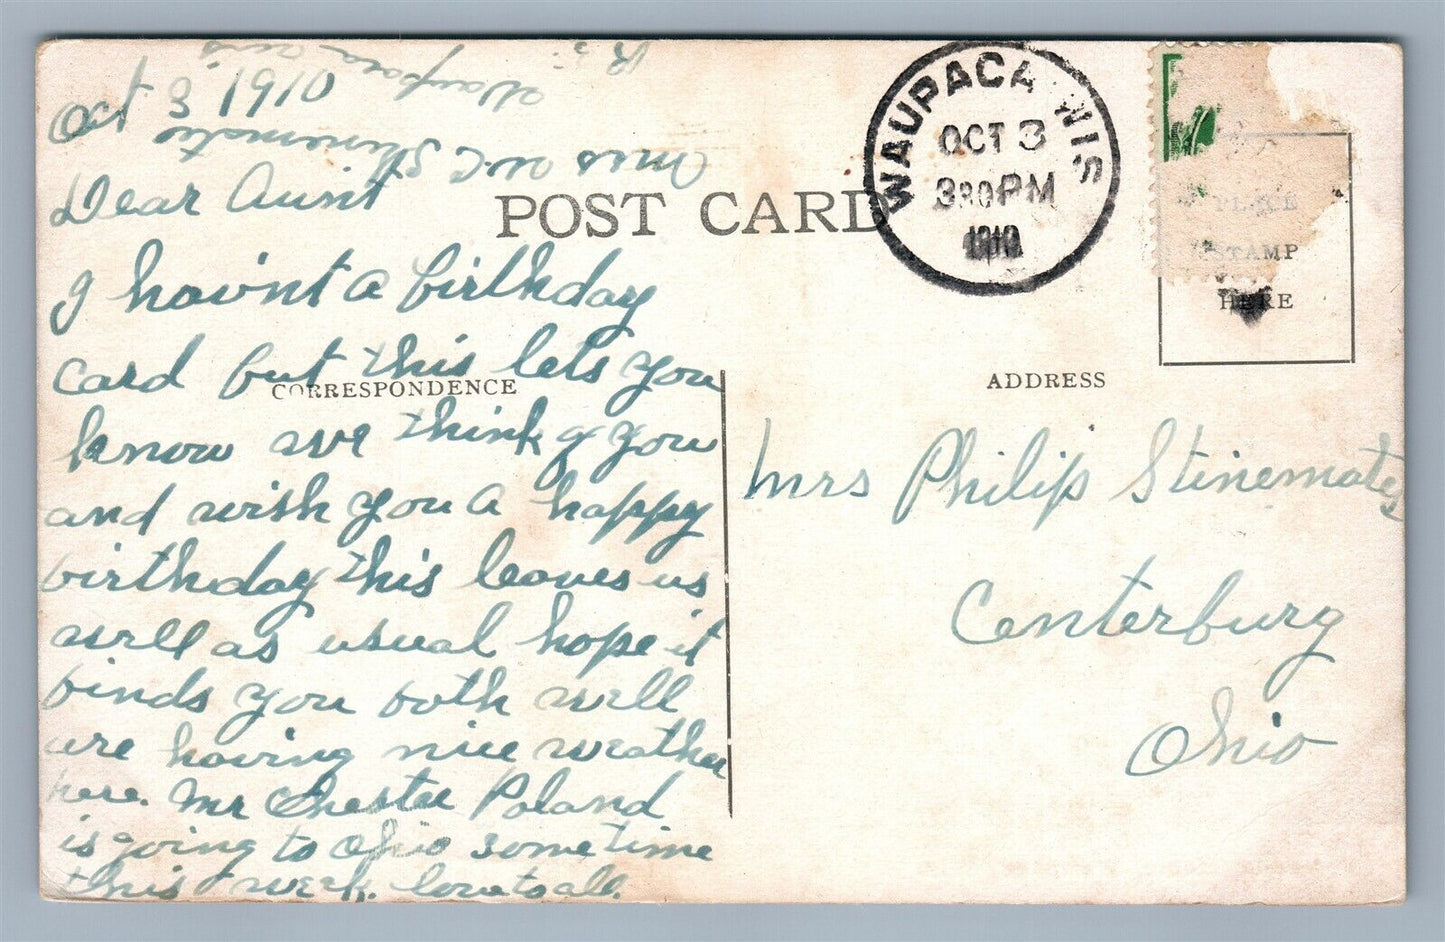 Oct 3 1910
Mrs W.C. Stinemates
Waupaca Wis
R 5
WAUPACA WIS
OCT 3
330 PM
1910
POST CARD
PLACE
STAMP
HERE
CORRESPONDENCE
ADDRESS
Dear Aunt
I havint a birthday
card but this lets you
know we think of you
and wish you a happy
birthday this leaves us
well as usual hope it
finds you both well
are having nice weather
here. Mr Chester Poland
is going to Ohio some time
this week. love to all.
Mrs Philip Stinemates
Centerburg
Ohio